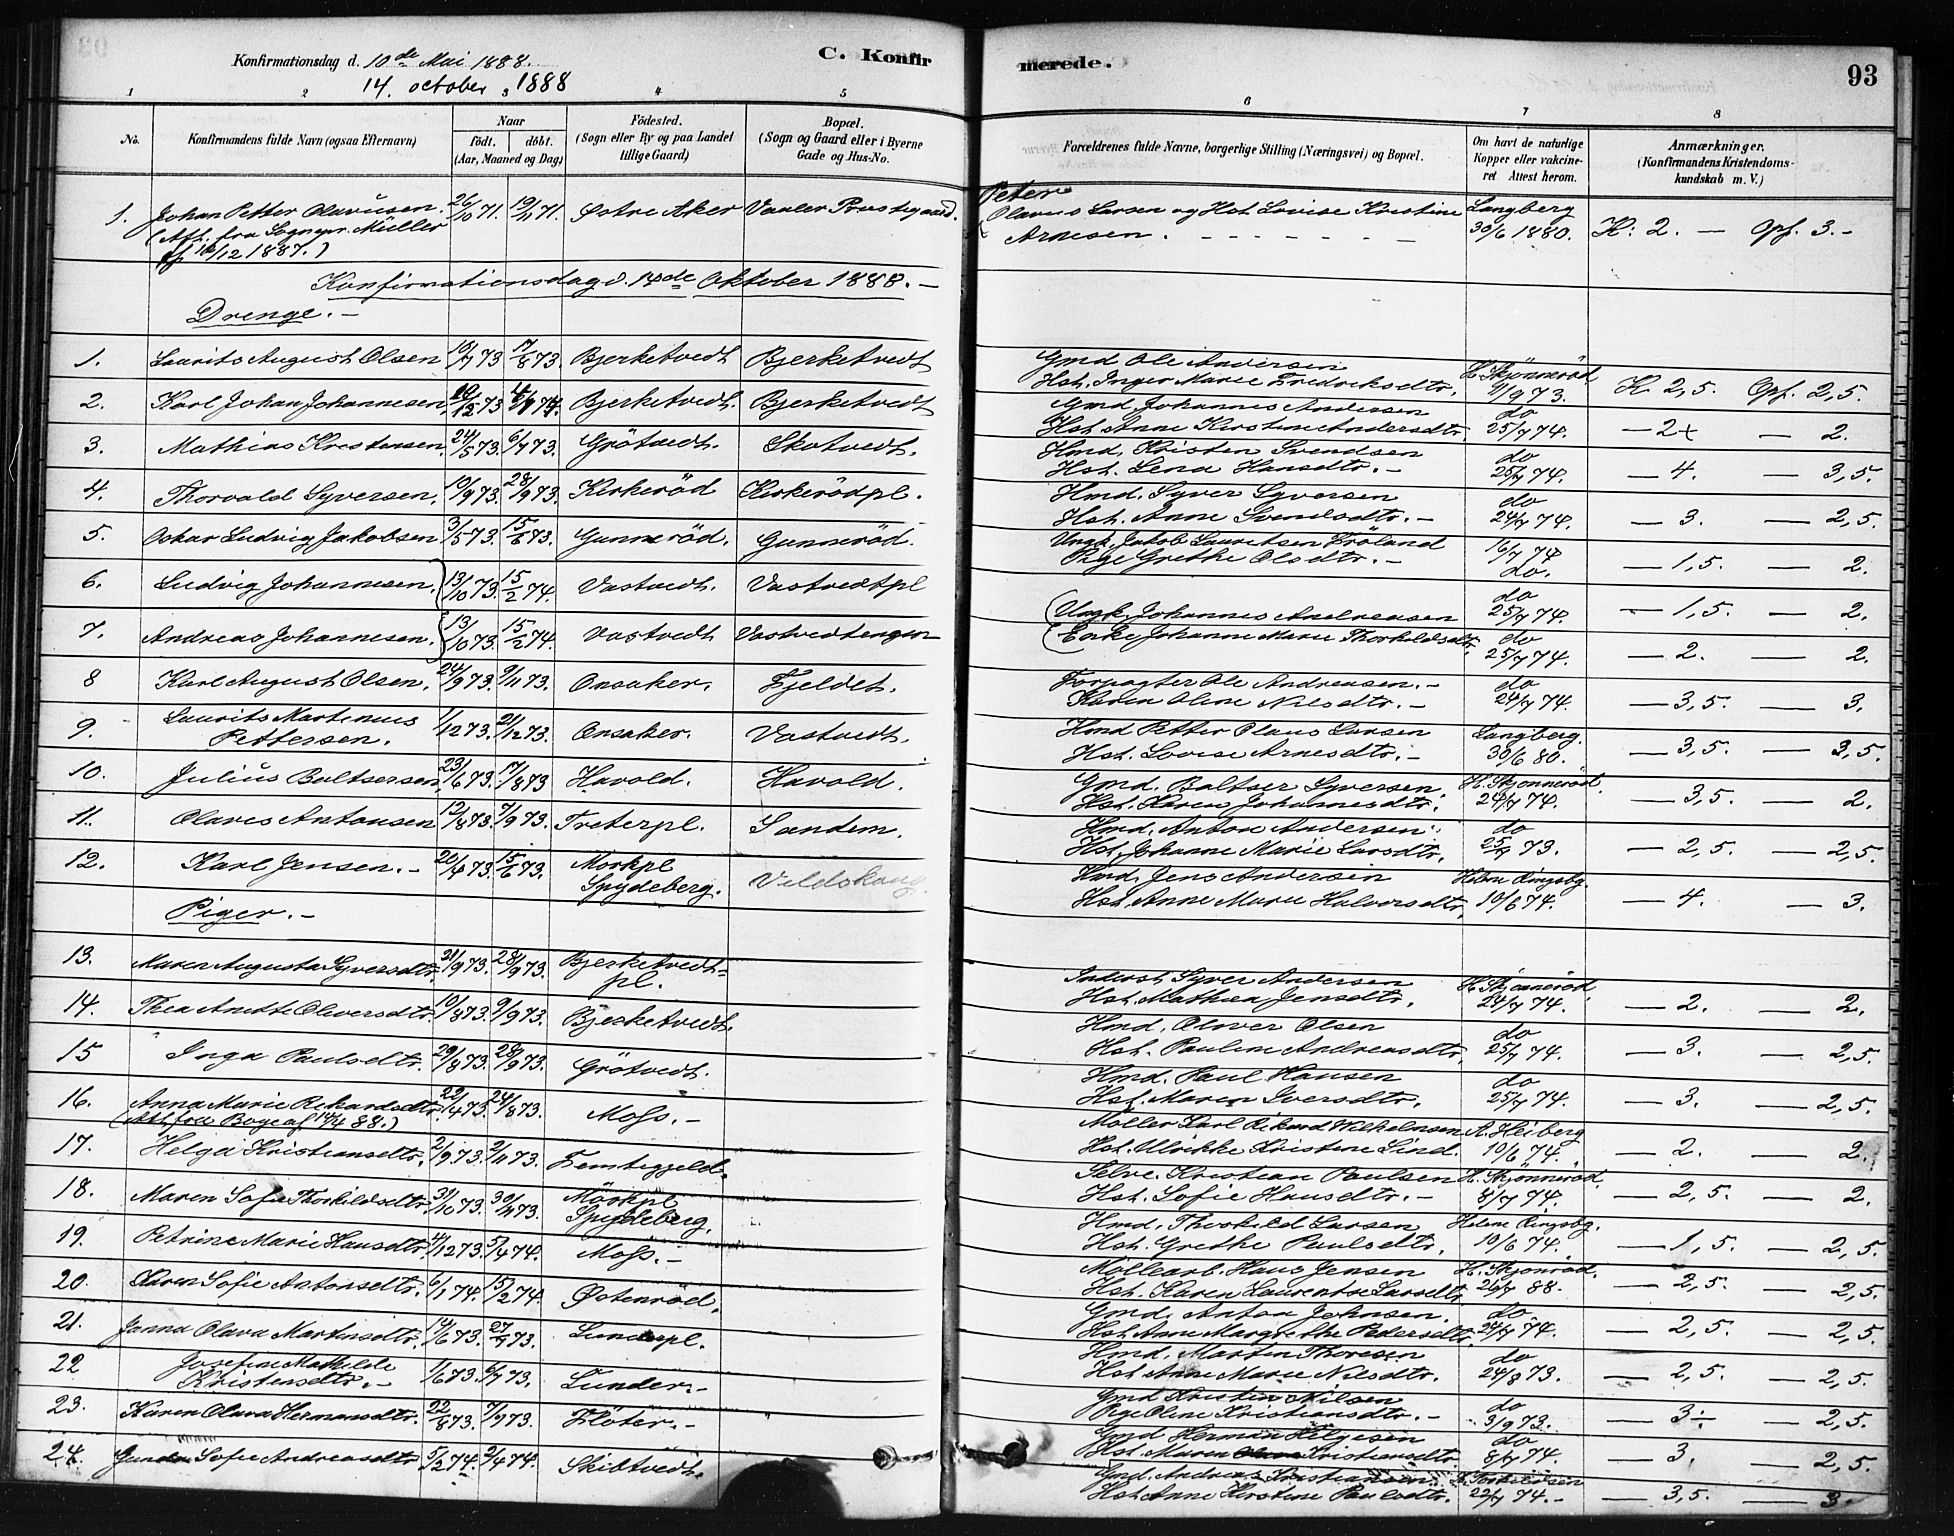 Konfirmationsdag d. 10de Mai 1888.
14. october 1888
C. Konfirmerede.
93
1 2 3 4 5 6 7 8
No.
Konfirmandens fulde Navn (ogsaa Efternavn)
Naar
født. døbt.
(Aar, Maaned og Dag)
Fødested.
(Sogn eller By og paa Landet
tillige Gaard)
Bopæl.
(Sogn og Gaard eller i Byerne
Gade og Hus-No.
Forældrenes fulde Navne, borgerlige Stilling (Næringsvei) og Bopæl.
Om havt de naturlige
Kopper eller vakcine-
ret Attest herom.
Anmærkninger.
(Konfirmandens Kristendoms-
kundskab m. V.)
1. Johan Petter Olavusen. 26/10 71. 19/11 71. Østre Aker Vaaler Præstegaard. Peter Olavus Larsen og Hst. Lovise Kristine Langberg
(Att. fra Sognepr. Müller Arnesen. 30/6 1880. K: 2. — Opf. 3.-
af 16/12 1887.)
Konfirmationsdag d. 14de Oktober 1888.-
Drenge.-
1. Laurits August Olsen 10/7 73 17/8 73. Bjerketvedt Bjerketvedt Gmd Ole Andersen H. Skjönneröd
Hst. Inger Marie Fredriksdtr. 11/9 73. K. 2,5. Opf. 2,5.
2. Karl Johan Johannesen. /12 73 4/1 74. Bjerketvedt. Bjerketvedt Gmd Johannes Andersen do
Hst. Anne Kirstine Andersdtr. 25/7 74. — 2+ — 2.
3. Mathias Kristensen. 24/5 73. 6/7 73. Grötvedt. Skotvedt. Hmd. Kristen Svendsen do
Hst. Lena Hansdtr.- 25/7 74. — 4. — 3,5.
4. Thorvald Syversen. 10/9 73. 28/9 73. Kirkeröd Kirkerödpl. Hmd. Syver Syversen do
Hst. Anne Svendsdtr.- 24/7 74. — 3. — 2,5.
5. Oskar Ludvig Jakobsen 3/5 73. 15/6 73. Gunneröd. Gunneröd. Ungk. Jakob Lauritsen Fröland 16/7 74
Pige Grethe Olsdtr.- do. — 1,5. — 2.
6. Ludvig Johannesen. 13/10 73. 15/2 74. Vastvedt. Vastvedtpl (Ungk. Johannes Andreasen do
25/7 74. — 1,5. — 2.
7. Andreas Johannesen. 13/10 73. 15/2 74. Vastvedt Vastvedtengen (Enke Johanne Marie Thorkildsdtr. do
25/7 74. — 2. — 2.
8 Karl August Olsen. 24/9 73. 9/11 73. Onsaker. Fjeldet. Forpagter Ole Andreasen.- do
Karen Oline Nilsdtr.- 24/7 74. — 3,5. — 3.
9. Laurits Martinus 1/12 73. 21/12 73. Onsaker. Vastvedt. Hmd Petter Olaus Larsen Langberg.
Pettersen. Hst. Lovise Arnesdtr.- 30/6 80. — 3,5. — 3,5.
10. Julius Baltsersen 23/6 73. 17/8 73 Havold. Havold. Gmd. Baltser Syversen. H. Skjønneröd.
Hst. Karen Johannesdtr. 24/7 74. — 3,5. — 2.
11. Olaves Antonsen 12/8 73. 7/9 73. Treterpl. Sandem. Hmd. Anton Andersen. do
Hst. Johanne Marie Larsdtr. 25/ 73. — 2,5. — 2,5.
12. Karl Jensen.- 20/4 73. 15/6 73. Morkpl Veldskaug. Hmd. Jens Andersen Helene Ringsbg.
Spydeberg. Hst. Anne Marie Halvorsdtr. 10/6 74. — 4. — 3.
Piger.-
13. Maren Augusta Syversdtr. 21/9 73. 28/9 73. Bjerketvedt= Inderst Syver Andersen H. Skjönneröd
pl. Hst. Mathea Jensdtr. 24/7 74. — 2. 2.
14. Thea Anette Oliversdtr. 10/8 73. 9/9 73. Bjerketvedt. Hmd. Oliver Olsen do
Hst. Pauline Andreasdtr. 25/7 74. — 3. — 2,5.
15 Inga Paulsdtr. 29/8 73. 28/9 73. Grötvedt. Hmd. Paul Hansen do
Hst. Maren Iversdtr. 25/7 74. — 3. — 2,5.
16. Anna Marie Rikardsdtr. 22/4 73. 24/8 73. Moss.- Möller Karl Rikard Wilhelmsen A. Heiberg
(Att. fra Bogeaf 14/4 88.) Hst. Ulrikke Kristine Lind. 10/6 74. — 2. 2.
17. Helga Kristiansdtr. 2/9 73. 2/11 73. Femtegjeld. Selve. Kristian Paulsen H. Skjönneröd.
Hst. Sofie Hansdtr.- 8/7 74. — 2,5. — 2.
18. Maren Sofie Thorkildsdtr. 31/10 73. 30/11 73. Mörkpl Hmd. Thorkild Larsen Helene Ringsbg.
Spydeberg. Hst. Grethe Paulsdtr. 10/6 74. — 1,5. — 2,5.
19. Petrine Marie Hansdtr. 4/12 73. 5/4 74. Moss.- Möllearb. Hans Jensen H. Skjönröd.
Hst. Karen Laurentse Larsdtr. 26/7 88. — 2,5. — 2,5.
20. Karen Sofie Antonsdtr. 6/1 74. 15/2 74. Østenröd. Gmd. Anton Johnsen. do.
Hst. Anne Margrethe Pedersdtr. 24/7 74. — 2,5. — 2,5.
21. Janna Olava Martinsdtr. 14/6 73. 27/7 73. Lunderpl. Hmd. Martin Thoresen do
Hst. Anne Marie Nilsdtr. 24/8 73. — 2,5. — 2,5.
22 Josefine Mathilde 1/6 73. 6/7 73. Lunder.- Gmd Kristen Nilsen do
Kristensdtr.- Pge Oline Kristiansdtr.- 3/9 73. — 3÷ — 2,5.
23. Karen Olava Hermansdtr. 22/8 73. 7/9 73. Flöter.- Gmd Herman Helgesen do
Hst. Maren Kristiansdtr. 8/7 74. — 3. — 2,5.
24. Gunda Sofie Andreasdtr. 5/2 74. 2/4 74. Skibtvedt. Gmd. Andreas Kristiansen.
Hst. Anne Kirstine Paulsdtr. 22/7 74.- — 3,5. — 3.